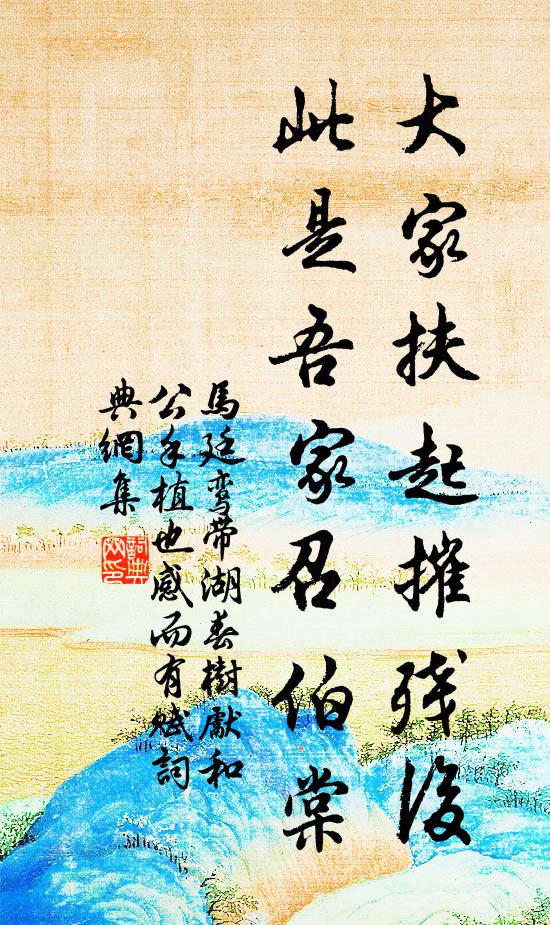 大家扶起摧殘後
此是吾家召伯棠
馬廷鸞帶湖春樹獻和
公手植也感而有賦詞
典網集
詞典網印